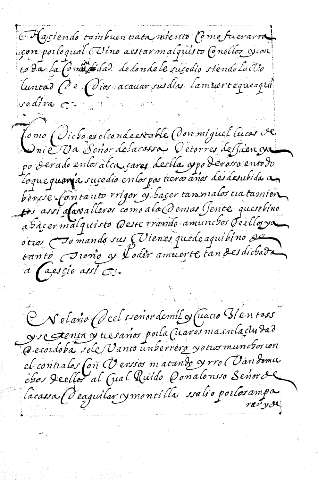 Haçiendo tambuen tratamiento como fuera ra
çon por lo qual vino aestar malquisto con ellos y con
toda la Comunidad de donde le suçedio siendo la vo
luntad de Dios acauar sus dias la muerte que aqui
se dira
Como dicho es el condestable Don miguel lucas de
Señor de la cassa de torres de Jaen y a
poderado en los alcaçares della y poderoso en todo
lo que queria suçedio en los postreros años desdebida a
berse con tanto rigor y haçer tan malos tratamien
tos assi a cavalleros como ala demas gente que se bino
a haçer malquisto desterrando a muchos dellos y a
otros tomando sus vienes que de aqui bino de
tanto y poder a muerte tan desdichada
assi
En el año del señor de mil y quatroçientos
y setenta y tres años por la cuaresma en la çiudad
de cordoba se levanto un herrero y otros muchos con
el contra los conversos matando y rrobando mu
chos dellos al cual Ruido Don alonso Señor de
la cassa de aguilar y montilla salio por los ampa
rar y de